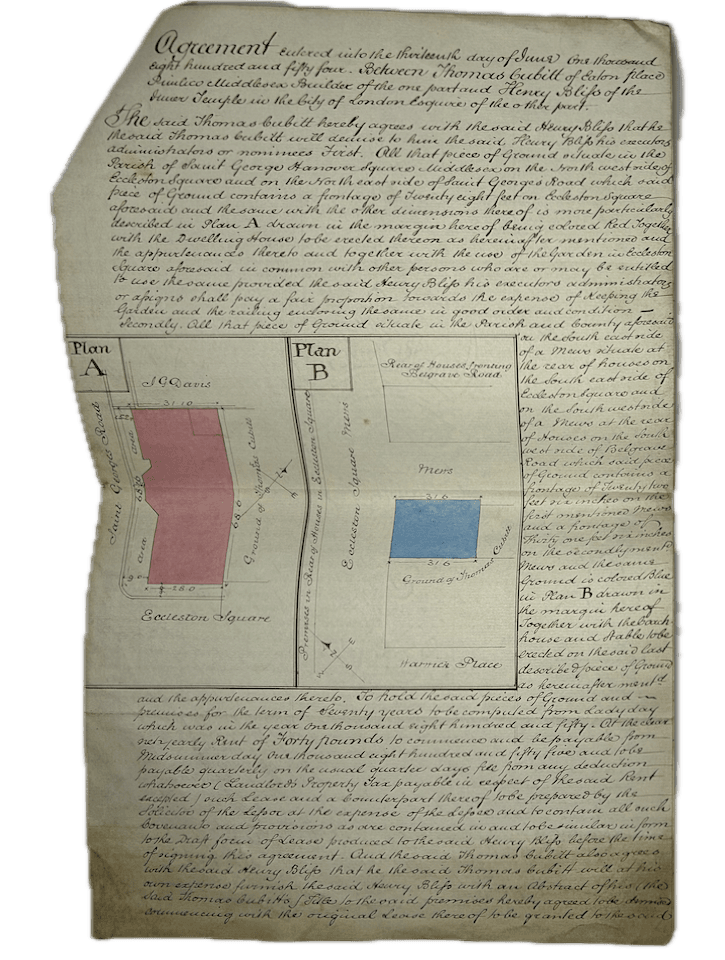 Agreement entered into the thirteenth day of June One thousand
eight hundred and fifty four. Between Thomas Cubitt of Eaton place
Pimlico Middlesex Builder of the one part and Henry Bliss of the
Inner Temple in the City of London Esquire of the other part.
The said Thomas Cubitt hereby agrees with the said Henry Bliss that he
the said Thomas Cubitt will demise to him the said Henry Bliss his executors
administrators or nominees First. All that piece of Ground situate in the
Parish of Saint George Hanover Square Middlesex on the North west side of
Eccleston Square and on the North east side of Saint Georges Road which said
piece of Ground contains a frontage of Twenty eight feet on Eccleston Square
aforesaid and the same with the other dimensions thereof is more particularly
described in Plan A drawn in the margin hereof being colored Red Together
with the Dwelling House to be erected thereon as hereinafter mentioned and
the appurtenances thereto and together with the use of the Garden in Eccleston
Square aforesaid in common with other persons who are or may be entitled
to use the same provided the said Henry Bliss his executors administrators
or assigns shall pay a fair proportion towards the expense of keeping the
Garden and the railing enclosing the same in good order and condition —
Secondly. All that piece of Ground situate in the Parish and County aforesaid
on the South east side
of a Mews situate at
the rear of houses on
the South east side of
Eccleston Square and
on the South west side
of a Mews at the rear
of Houses on the South
west side of Belgrave
Road which said piece
of Ground contains a
frontage of Twenty two
feet six inches on the
first mentioned Mews
and a frontage of
Thirty one feet six inches
on the secondly mentd
Mews and the same
Ground is colored Blue
in Plan B drawn in
the margin hereof
Together with the Coach
house and Stable to be
erected on the said last
described piece of Ground
as hereinafter mentd
Plan
A
J G Davis
31.10
Saint Georges Road
area
68.0
area
68.6
Ground of Thomas Cubitt
28.0
Eccleston Square
Plan
B
Rear of Houses fronting
Belgrave Road.
Premises in Rear of Houses in Eccleston Square
Eccleston Square Mews
Mews
31.6
31.6
Ground of Thomas Cubitt
N
E
S
Place
and the appurtenances thereto. To hold the said pieces of Ground and —
premises for the term of Seventy years to be computed from Ladyday
which was in the year One thousand eight hundred and fifty. At the clear
net yearly Rent of Forty pounds to commence and be payable from
Midsummer day One thousand eight hundred and fifty five and to be
payable quarterly on the usual quarter days free from any deduction
whatsoever (Landlord's Property Tax payable in respect of the said Rent
excepted) such Lease and a Counterpart thereof to be prepared by the
Solicitor of the Lessor at the expense of the Lessee and to contain all such
Covenants and provisions as are contained in and to be similar in form
to the Draft form of Lease produced to the said Henry Bliss before the time
of signing this agreement. And the said Thomas Cubitt also agrees
with the said Henry Bliss that he the said Thomas Cubitt will at his
own expense furnish the said Henry Bliss with an Abstract of his (the
said Thomas Cubitts) Title to the said premises hereby agreed to be demised
commencing with the original Lease thereof to be granted to the said